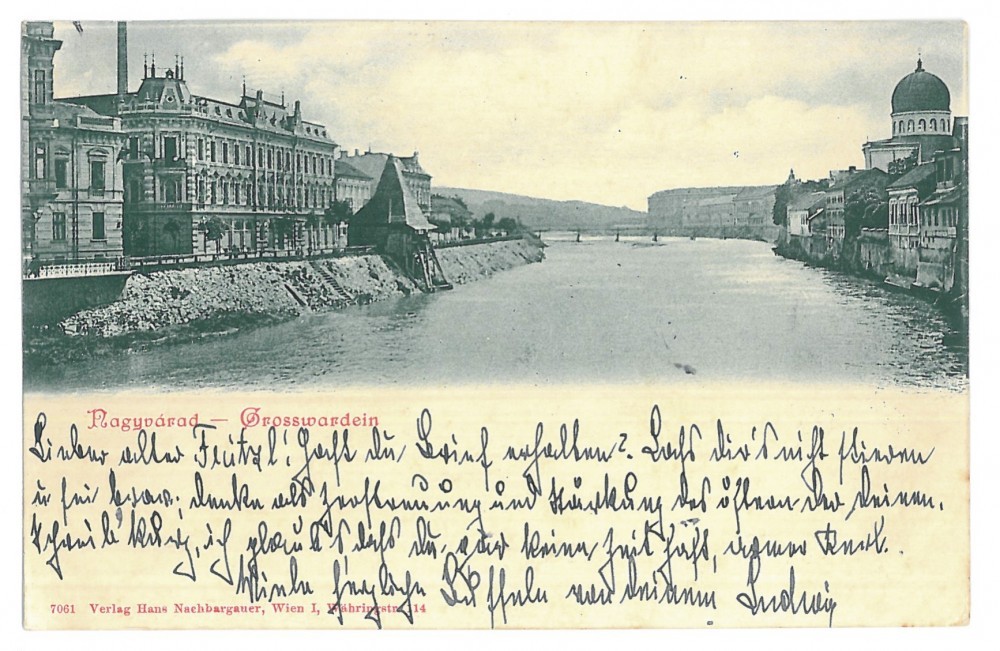 Nagyvárad — Grosswardein
Lieber alter Fritzl! Hast du Brief erhalten? Lass dir's nicht
u sei brav; denke als Zerstreuung und Stärkung des öftern der Deinen.
Schreib' kurz, ich glaub's dass du gar keine Zeit hast, armer Kerl.
Viele herzliche von deinem Ludwig
7061 Verlag Hans Nachbargauer, Wien I, Währingstr. 14